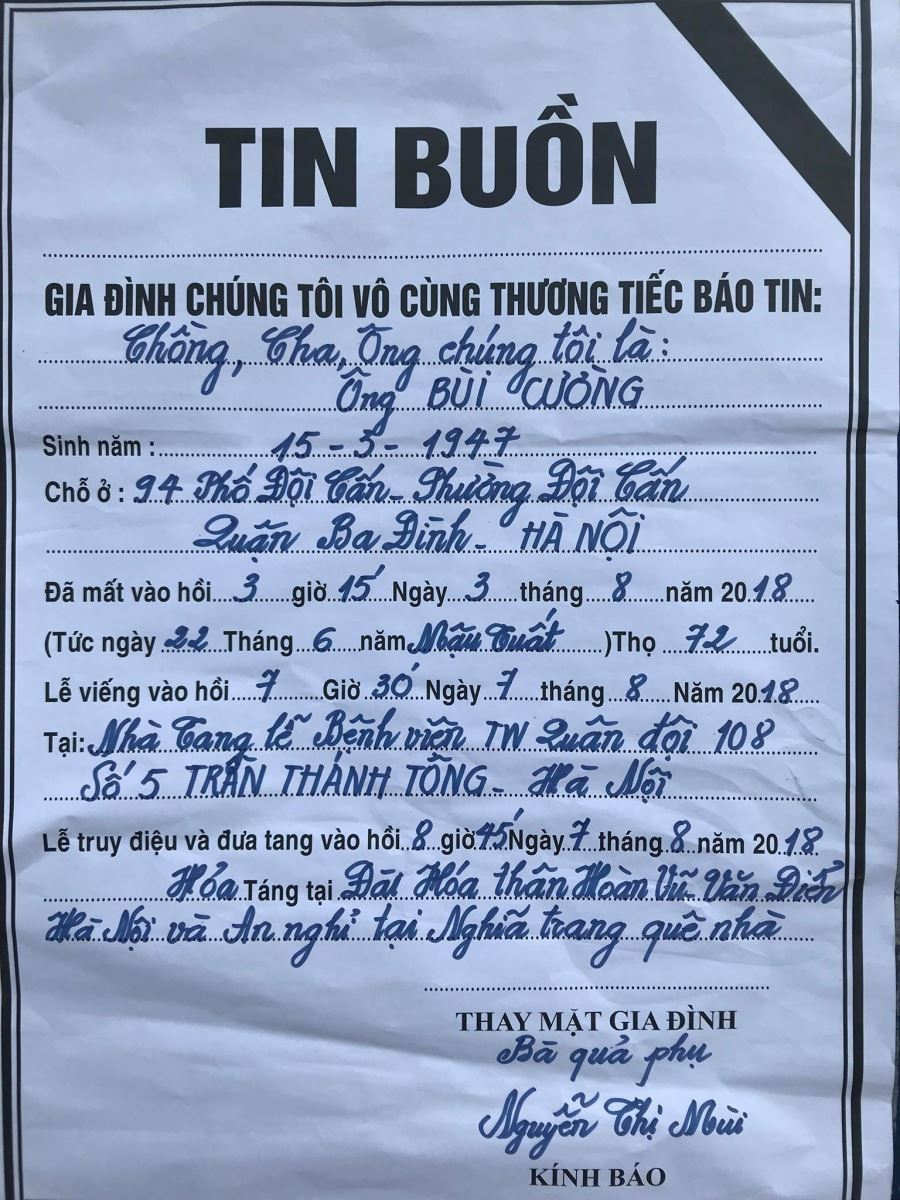 TIN BUỒN
GIA ĐÌNH CHÚNG TÔI VÔ CÙNG THƯƠNG TIẾC BÁO TIN:
Chồng, Cha, Ông chúng tôi là:
Ông BÙI CƯỜNG
Sinh năm : 15-5-1947
Chỗ ở : 94 Phố Đội Cấn - Phường Đội Cấn
Quận Ba Đình - HÀ NỘI
Đã mất vào hồi 3 giờ 15' Ngày 3 tháng 8 năm 2018
(Tức ngày 22 Tháng 6 năm Mậu Tuất )Thọ 72 tuổi.
Lễ viếng vào hồi 7 Giờ 30' Ngày 7 tháng 8 Năm 2018
Tại: Nhà Tang lễ Bệnh viện TW Quân đội 108
Số 5 TRẦN THÁNH TÔNG - Hà Nội
Lễ truy điệu và đưa tang vào hồi 8 giờ 45' Ngày 7 tháng 8 năm 2018
Hỏa Táng tại Đài Hóa thân Hoàn Vũ Văn Điển
Hà Nội và An nghỉ tại Nghĩa trang quê nhà
THAY MẶT GIA ĐÌNH
Bà quả phụ
Nguyễn Thị Mùi
KÍNH BÁO